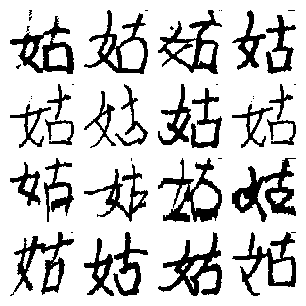 姑姑姑姑
姑姑姑姑
姑姑姑姑
姑姑姑姑